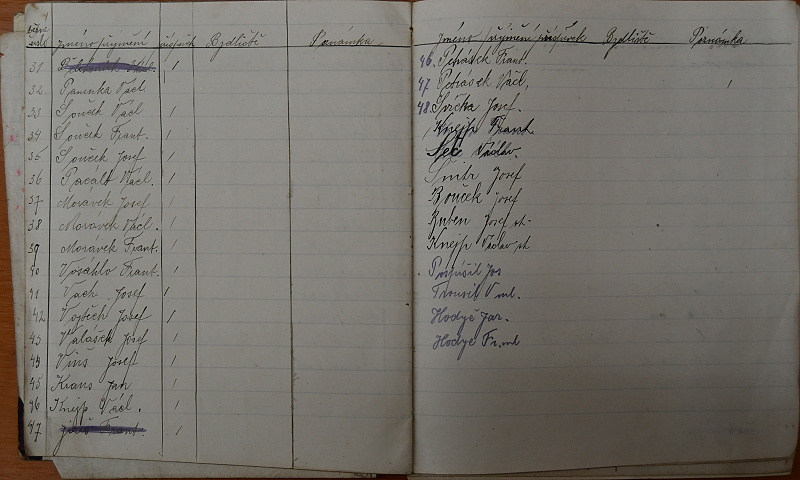 Jméno příjmení příspěvek Bydliště Poznámka
31
32. Panenka Václ.
33 Souček Václ. /
34 Souček Frant. /
35 Souček Josef /
36 Pacalt Václ. /
37 Moravek Josef /
38 Morávek Václ. /
39 Moravek Frant. /
40 Vosáhlo Frant. /
41 Vach Josef /
42 Vojtěch Josef /
43 Valášek Josef /
44 Vins Josef /
45 Kraus Jan /
46 Knejp Václ. /
47 Frant. /
Jméno příjmení příspěvek Bydliště Poznámka
46. Frant.
47 Petrásek Václ,
48. Josef.
Knejp Frant.
Václav.
Josef
Bouček Josef
Kuben Josef st.
Knejp Václav st
Pospíšil Jos
V ml.
Hodyč Jar.
Hodyč Fr. ml